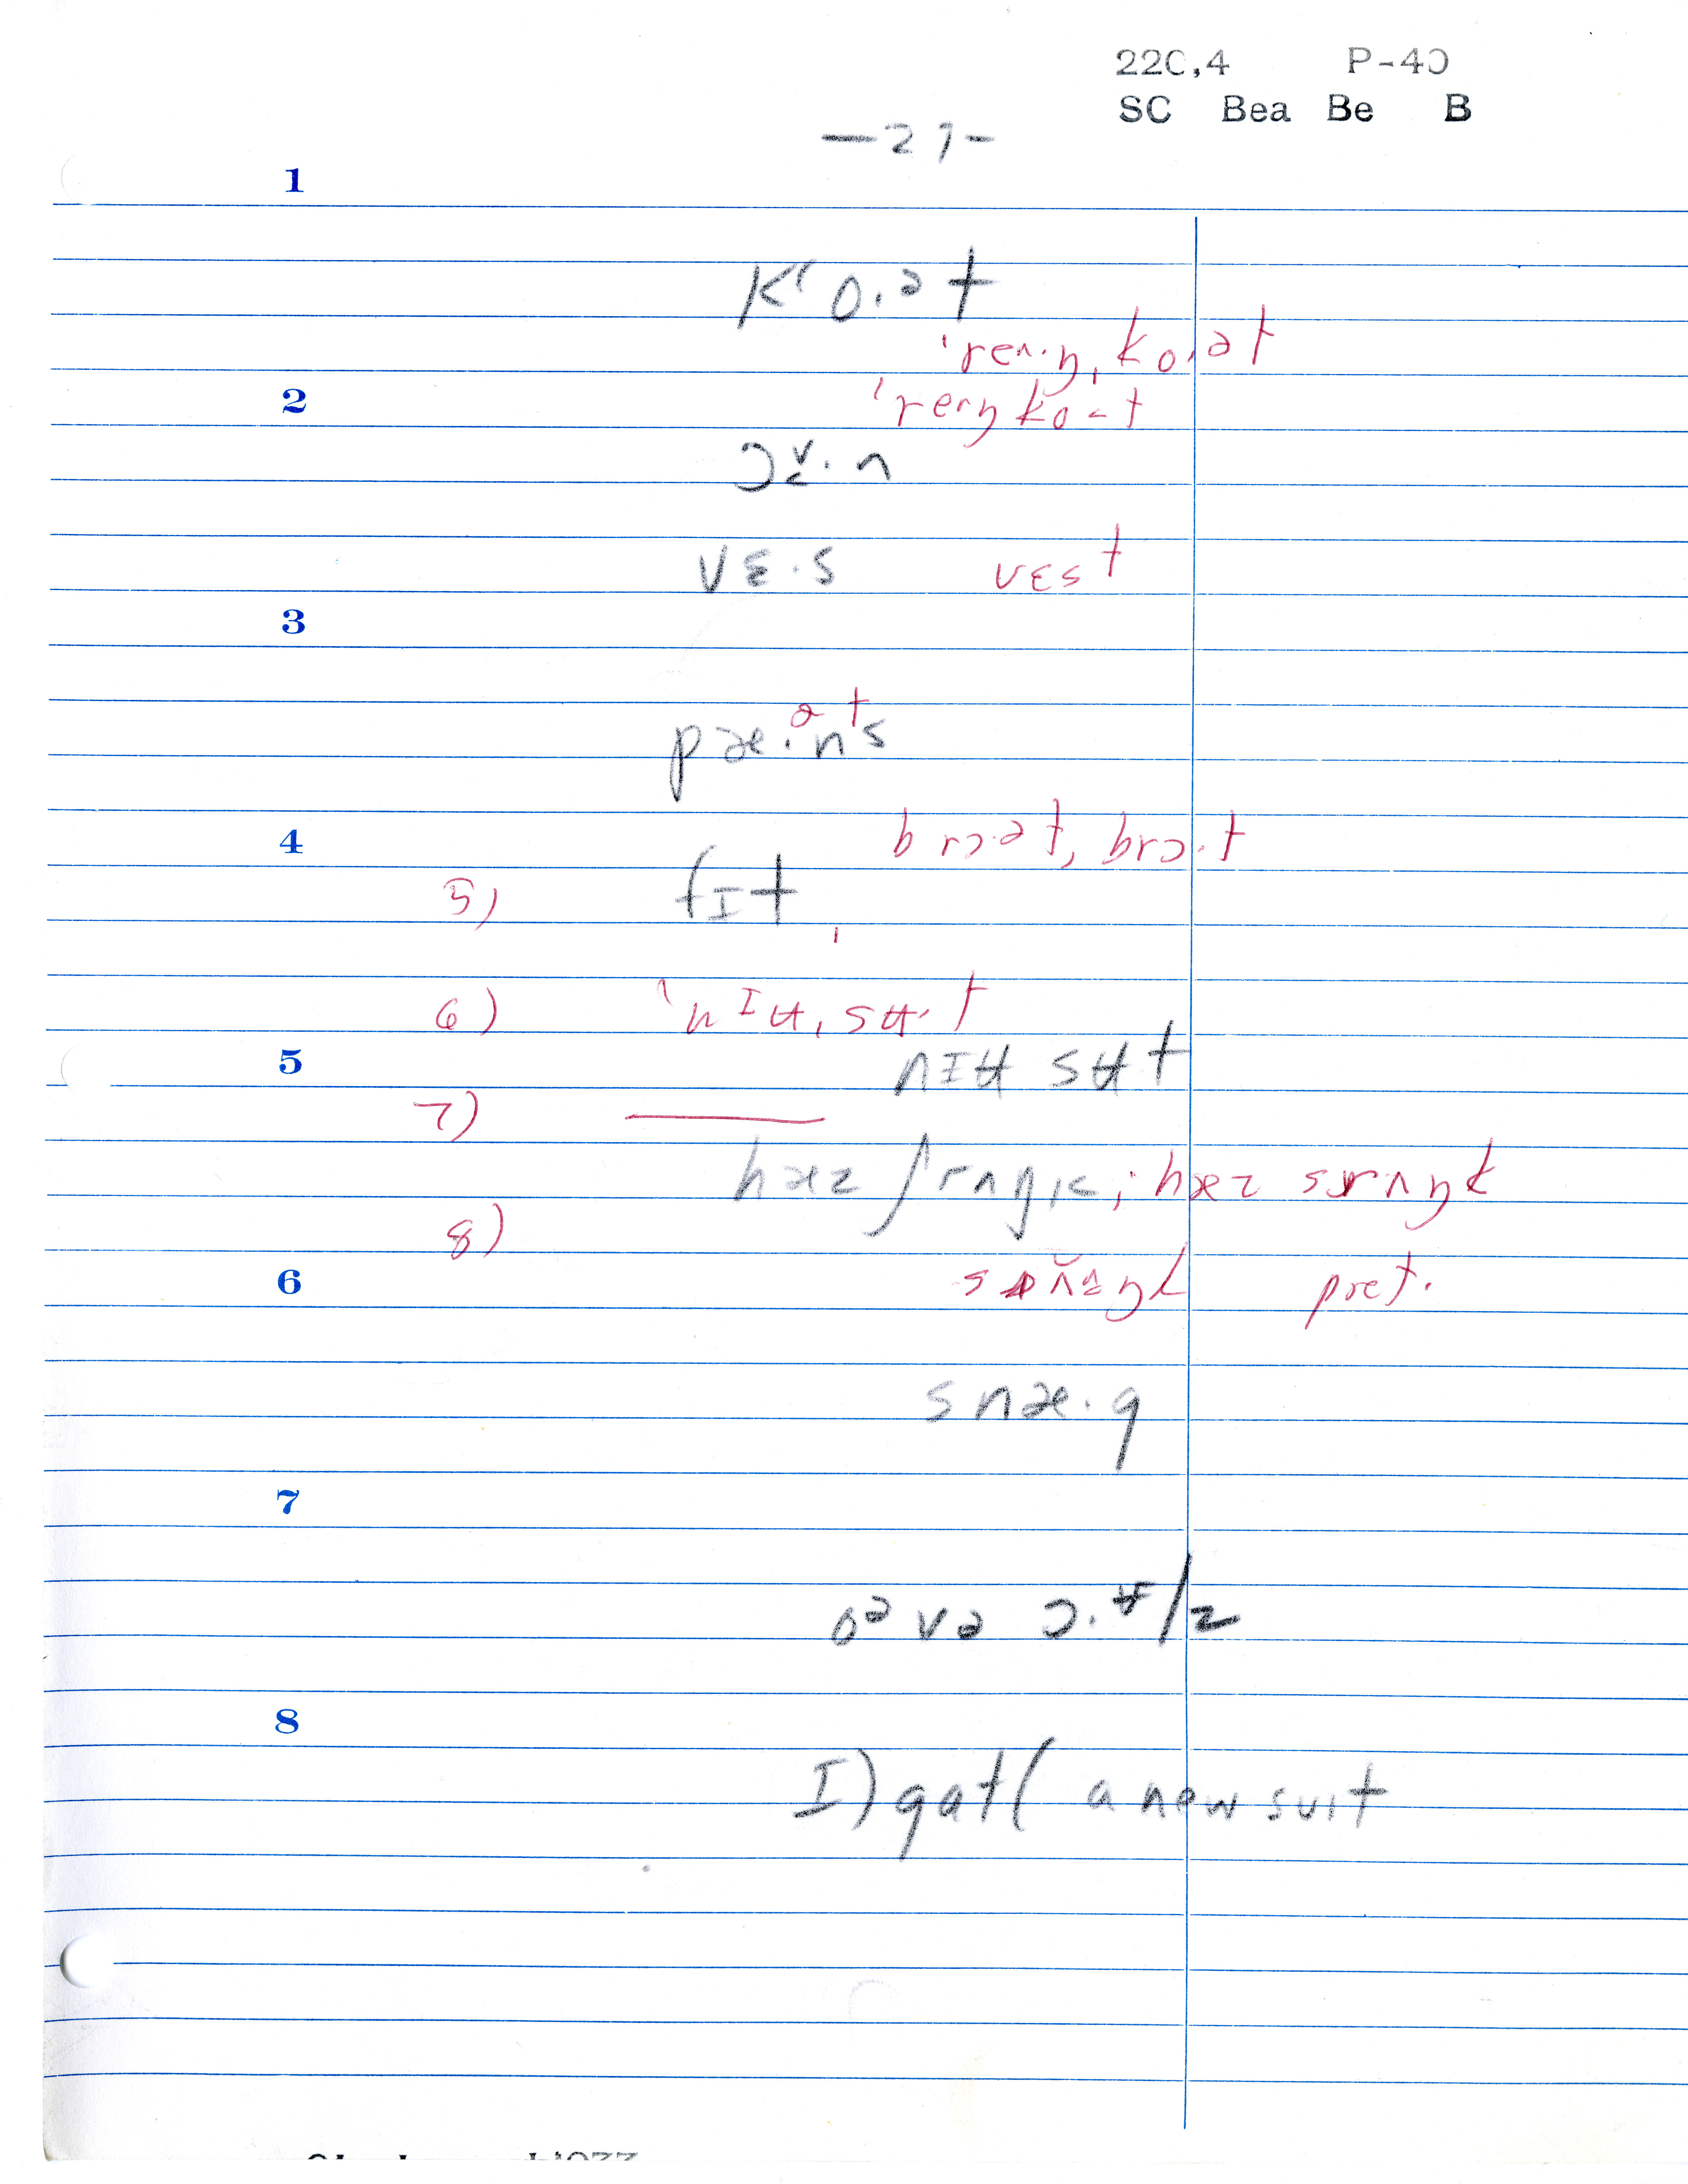 220,4 P-40
SC Bea Be B
-27-
1
kʻo.ət
ˈreʌ.ŋˌko.ət
2
vɛ.s vɛst
3
pæ.ənts
4
brɔ.ət, brɔ.t
5) fɪt
6) ˈnɪʉˌsʉ.t
5
nɪʉ sʉt
7)
hæz ʃrʌŋk; hæz srʌŋk
8)
6
pret.
snæ.g
7
8
I) gat( a new suit